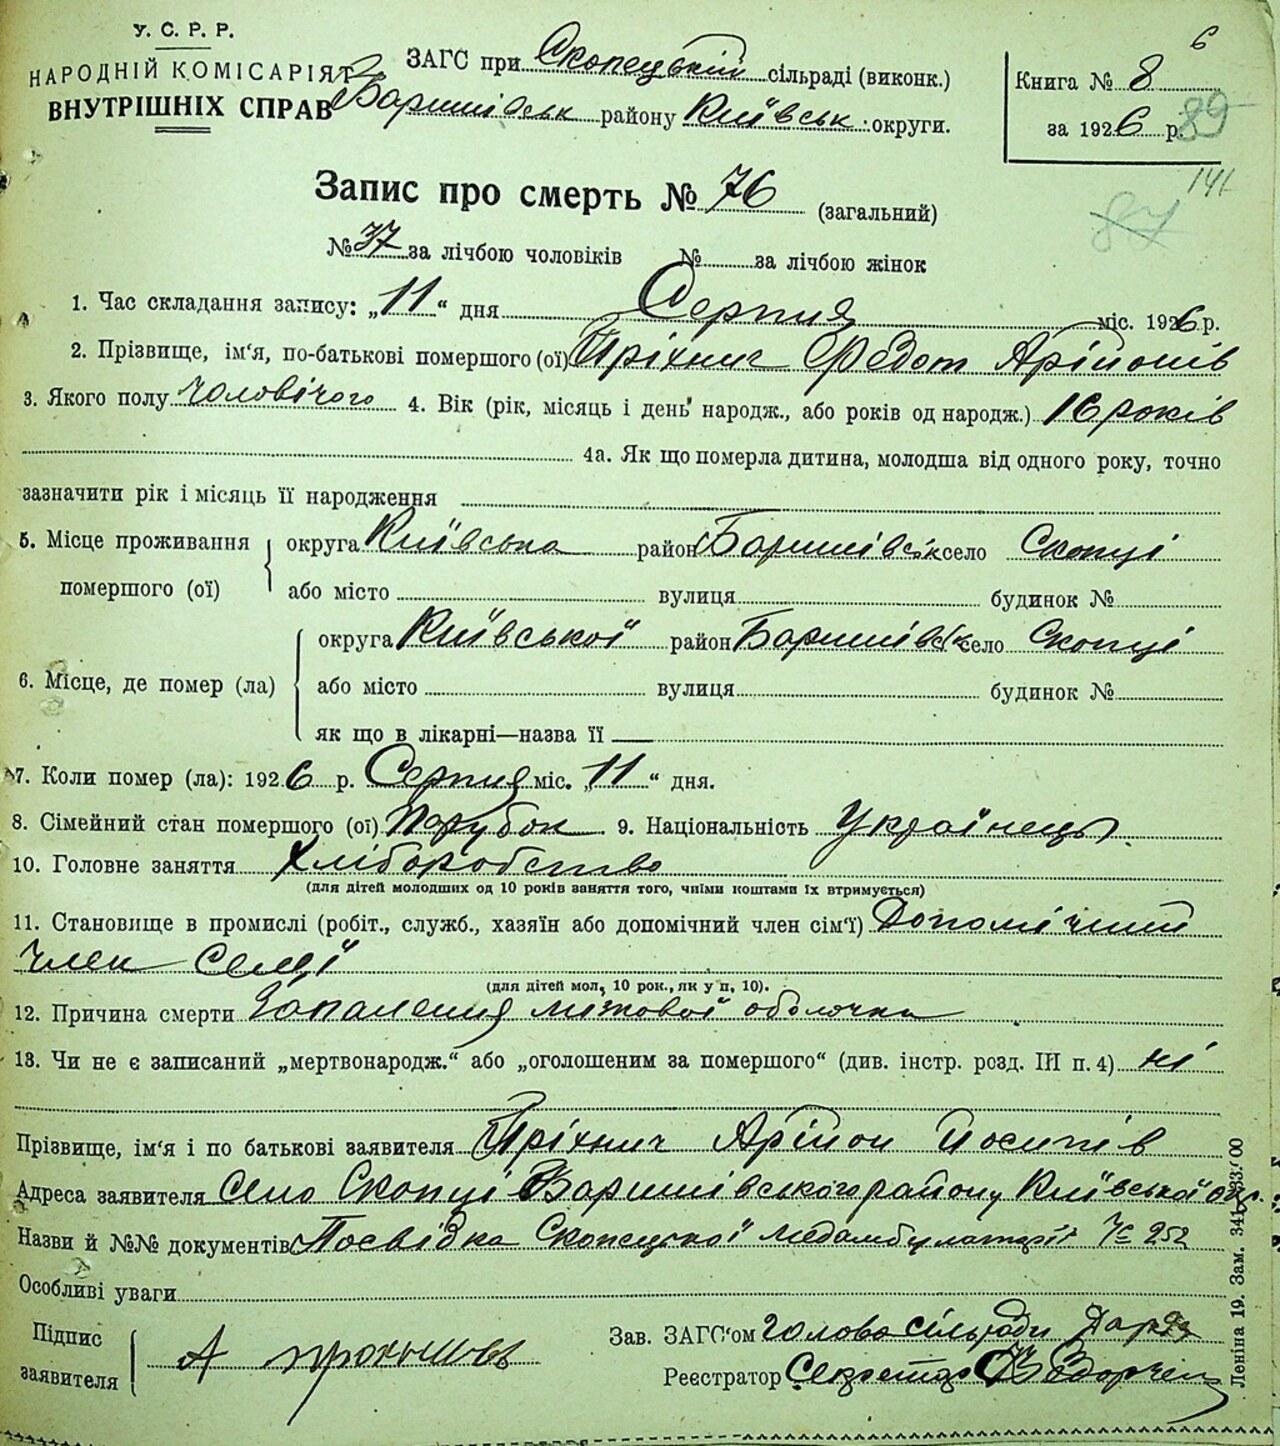 6
У. С. Р. Р.
НАРОДНІЙ КОМІСАРІЯТ
ВНУТРІШНІХ СПРАВ
ЗАГС при Скопецькій сільраді (виконк.)
Баришівськ району Київськ округи.
Книга № 8
за 1926 р.
89
141
87
Запис про смерть № 76 (загальний)
№ 37 за лічбою чоловіків № за лічбою жінок
1. Час складання запису: „11“ дня Серпня міс. 1926 р.
2. Прізвище, ім‘я, по-батькові помершого (ої) Пріхнич Федот Арійонів
3. Якого полу чоловічого 4. Вік (рік, місяць і день народж., або років од народж.) 16 років
4а. Як що померла дитина, молодша від одного року, точно
зазначити рік і місяць її народження
5. Місце проживання помершого (ої) округа Київська район Баришівськ село Скопці
або місто вулиця будинок №
6. Місце, де помер (ла) округа Київської район Баришівськ село Скопці
або місто вулиця будинок №
як що в лікарні—назва її
7. Коли помер (ла): 1926 р. Серпня міс. „11“ дня.
8. Сімейний стан помершого (ої) Парубок 9. Національність Українець
10. Головне заняття Хліборобство
(для дітей молодших од 10 років заняття того, чиїми коштами їх втримується)
11. Становище в промислі (робіт., служб., хазяїн або допомічний член сім‘ї) Допомічний
член семї
(для дітей мол, 10 рок., як у п, 10).
12. Причина смерти Запалення мизкової оболочки
13. Чи не є записаний „мертвонародж.“ або „оголошеним за помершого“ (див. інстр. розд. III п. 4) ні
Прізвище, ім‘я і по батькові заявителя Пріхнич Арійон Йосипів
Адреса заявителя Село Скопці Баришівського району Київської окр.
Назви й №№ документів Посвідка Скопецької медамбулаторії № 252
Особливі уваги
Підпис заявителя А
Зав. ЗАГС‘ом голова сільради
Реєстратор Секретар
Леніна 19. Зам. 341